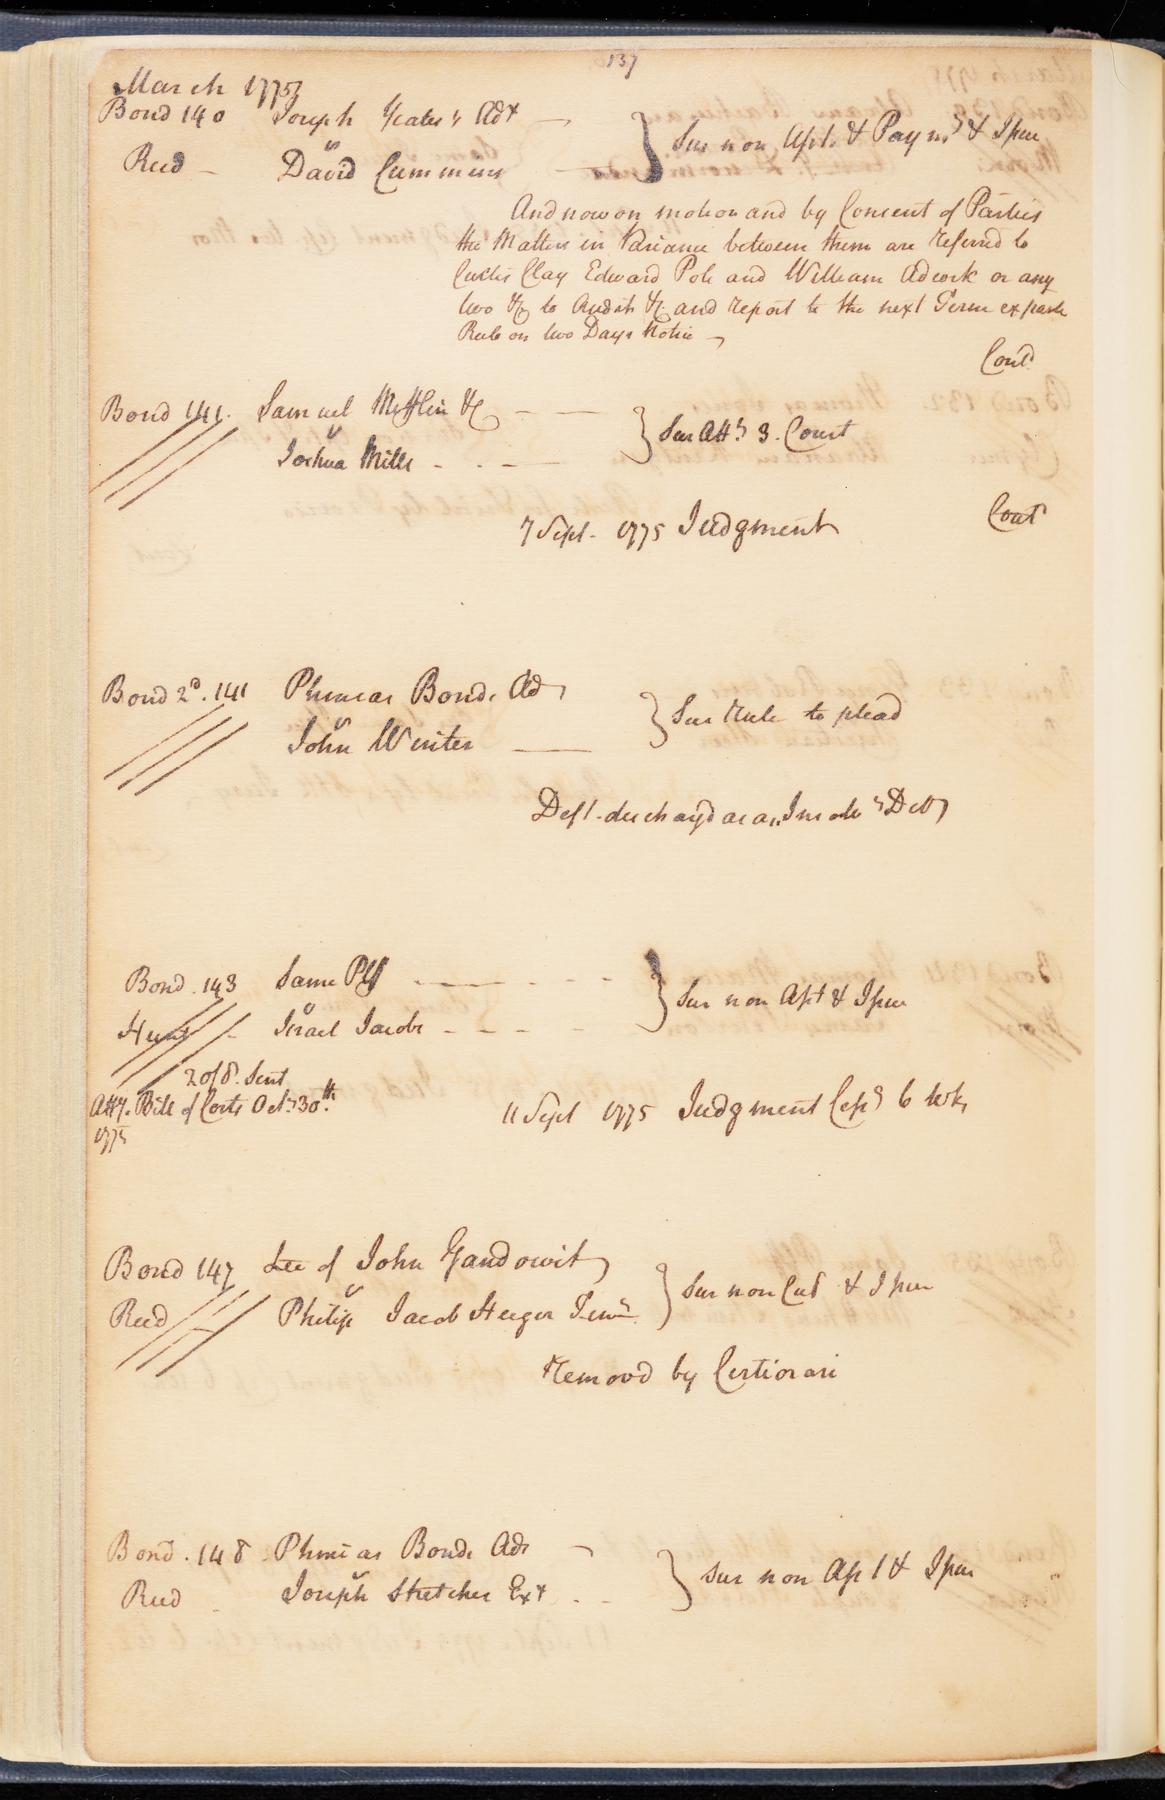 137
March 1775
Bond 140 Joseph Yeates's Adx
v
Reed David Cummins } Sur non Aspt. & Paymt & Issue
And now on motion and by Consent of Parties
the Matters in Variance between them are referred to
Curtis Clay Edward Pole and William Adcock or any
two &c to Audit &c and report to the next Term ex parte
Rule on two Days Notice
Contd
Bond 141. Samuel Mifflin &c
v
Joshua Mills } Sur Atts 3. Court
7 Sept. 1775 Judgment Cont
Bond 2d. 141 Phineas Bonds Ad
v
John Winter } Sur Rule to plead
Deft. dischargd as an Insolv Debr
Bond. 143 Same Plf
v
Hunt Israel Jacobs } Sur non Aspt & Issue
2 of 8. Sent
Atty. Bill of Costs Octr 30th
1775
11 Sept 1775 Judgment 6 wks
Bond 147 Lee of John Gandowit
v
Reed Philip Jacob Steiger Tent } Sur non Cul & Issue
Removd by Certiorari
Bond. 148 Phineas Bonds Adr
v
Reed Joseph Stretcher Exr } Sur non Aspt & Issue